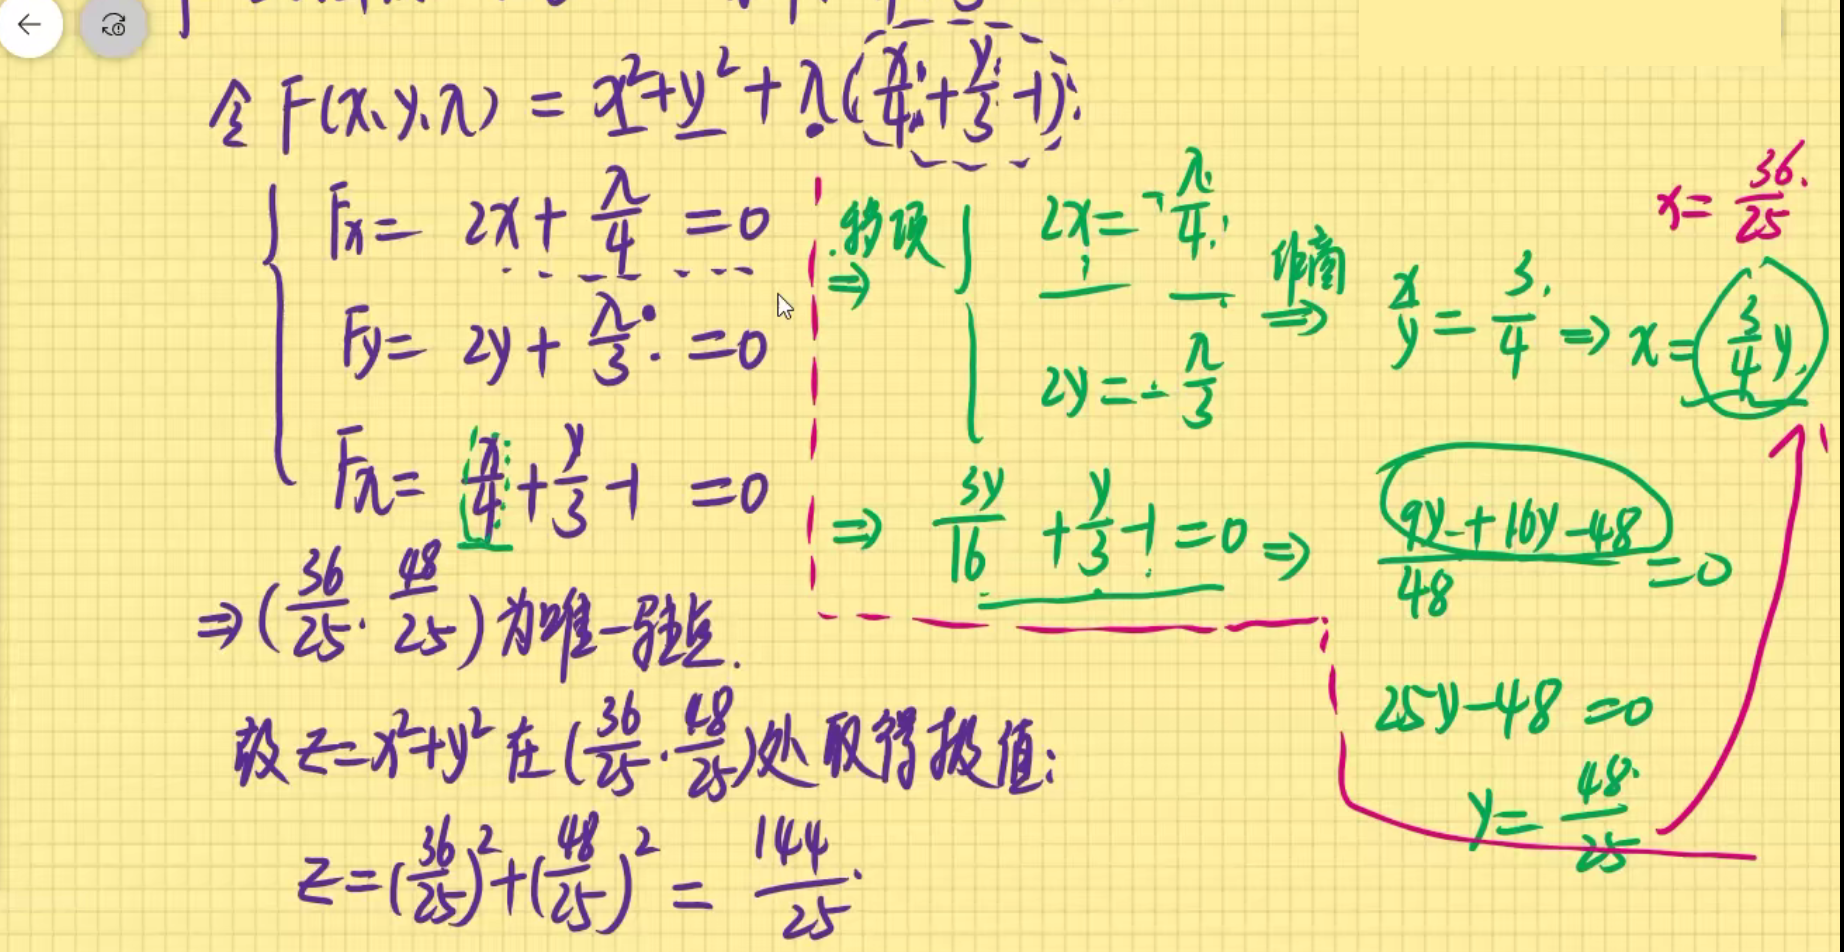 令 F(x、y、λ) = x²+y²+λ(x/4+y/3-1).
Fx= 2x+λ/4 =0
Fy= 2y+λ/3 =0
Fλ= x/4+y/3-1 =0
移项 ⇒ 2x=-λ/4
2y=-λ/3
作商 ⇒ x/y=3/4 ⇒ x=3/4y
x=36/25
⇒ 3y/16+y/3-1=0 ⇒ (9y+16y-48)/48=0
25y-48=0
y=48/25
⇒(36/25. 48/25)为唯一驻点.
故 z=x²+y² 在(36/25.48/25)处取得极值:
z=(36/25)²+(48/25)² = 144/25.